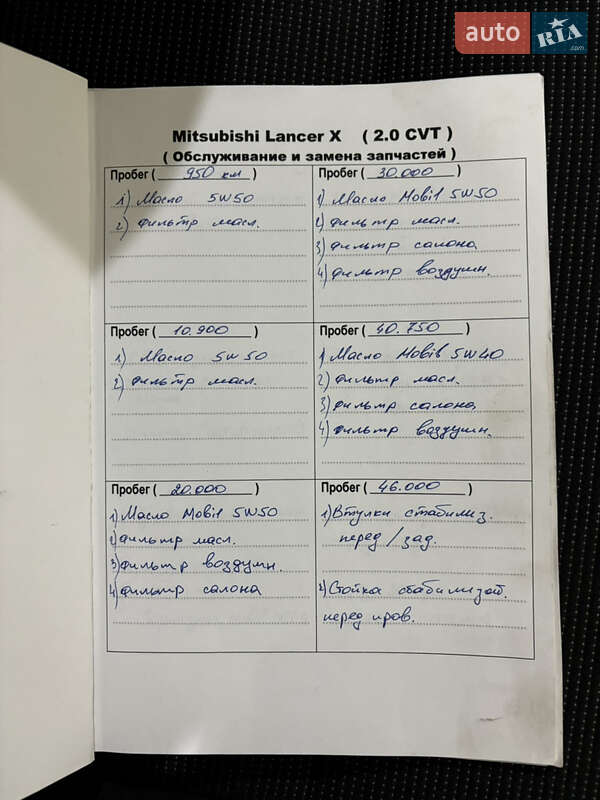 auto RIA .com
Mitsubishi Lancer X ( 2.0 CVT )
( Обслуживание и замена запчастей )
Пробег ( 950 км )
1) Масло 5W50
2) Фильтр масл.
Пробег ( 10.900 )
1) Масло 5W50
2) Фильтр масл.
Пробег ( 20.000 )
1) Масло Mobil 5W50
2) Фильтр масл.
3) Фильтр воздушн.
4) Фильтр салона
Пробег ( 30.000 )
1) Масло Mobil 5W50
2) Фильтр масл.
3) Фильтр салона
4) Фильтр воздушн.
Пробег ( 40.750 )
1) Масло Mobil 5W40
2) Фильтр масл.
3) Фильтр салона
4) Фильтр воздушн.
Пробег ( 46.000 )
1) Втулки стабилиз.
перед/зад.
2) Стойка стабилизат.
перед прав.